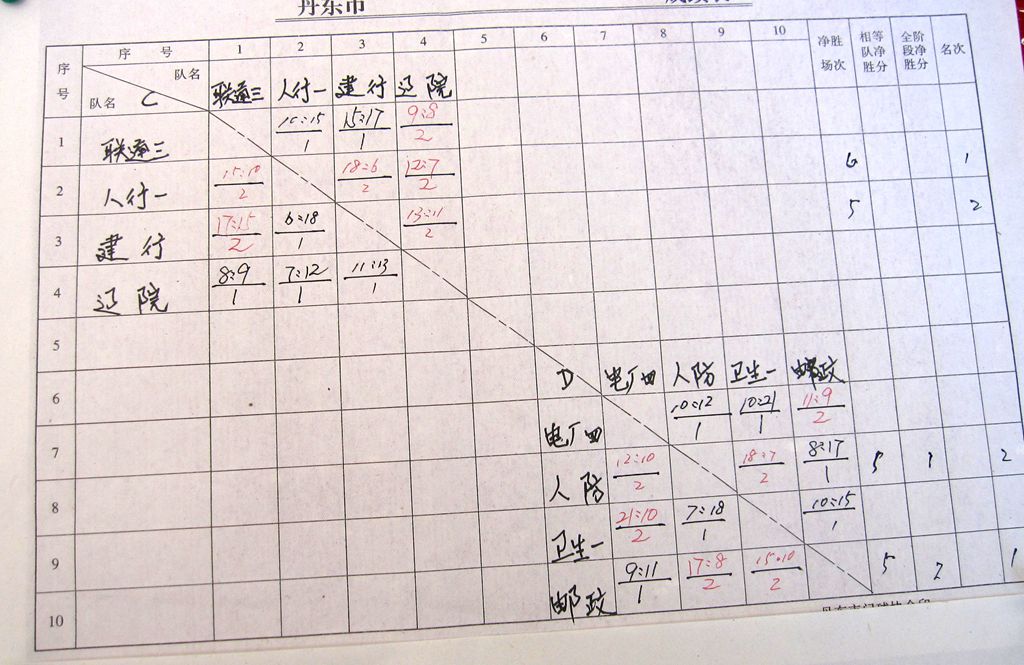 丹东市
序 号 1 2 3 4 5 6 7 8 9 10 净胜场次 相等队净胜分 全阶段净胜分 名次
序号 队名
队名 C 联运三 人行一 建行 辽院
1 联运三 10:15/1 15:17/1 9:8/2
2 人行一 15:10/2 18:6/2 12:7/2 6 1
3 建行 17:15/2 6:18/1 13:11/2 5 2
4 辽院 8:9/1 7:12/1 11:13/1
5
6 D 电厂四 人防 卫生一 邮政
7 电厂四 10:12/1 10:21/1 11:9/2
8 人防 12:10/2 18:7/2 8:17/1 5 1 2
9 卫生一 21:10/2 7:18/1 10:15/1
10 邮政 9:11/1 17:8/2 15:10/2 5 2 1